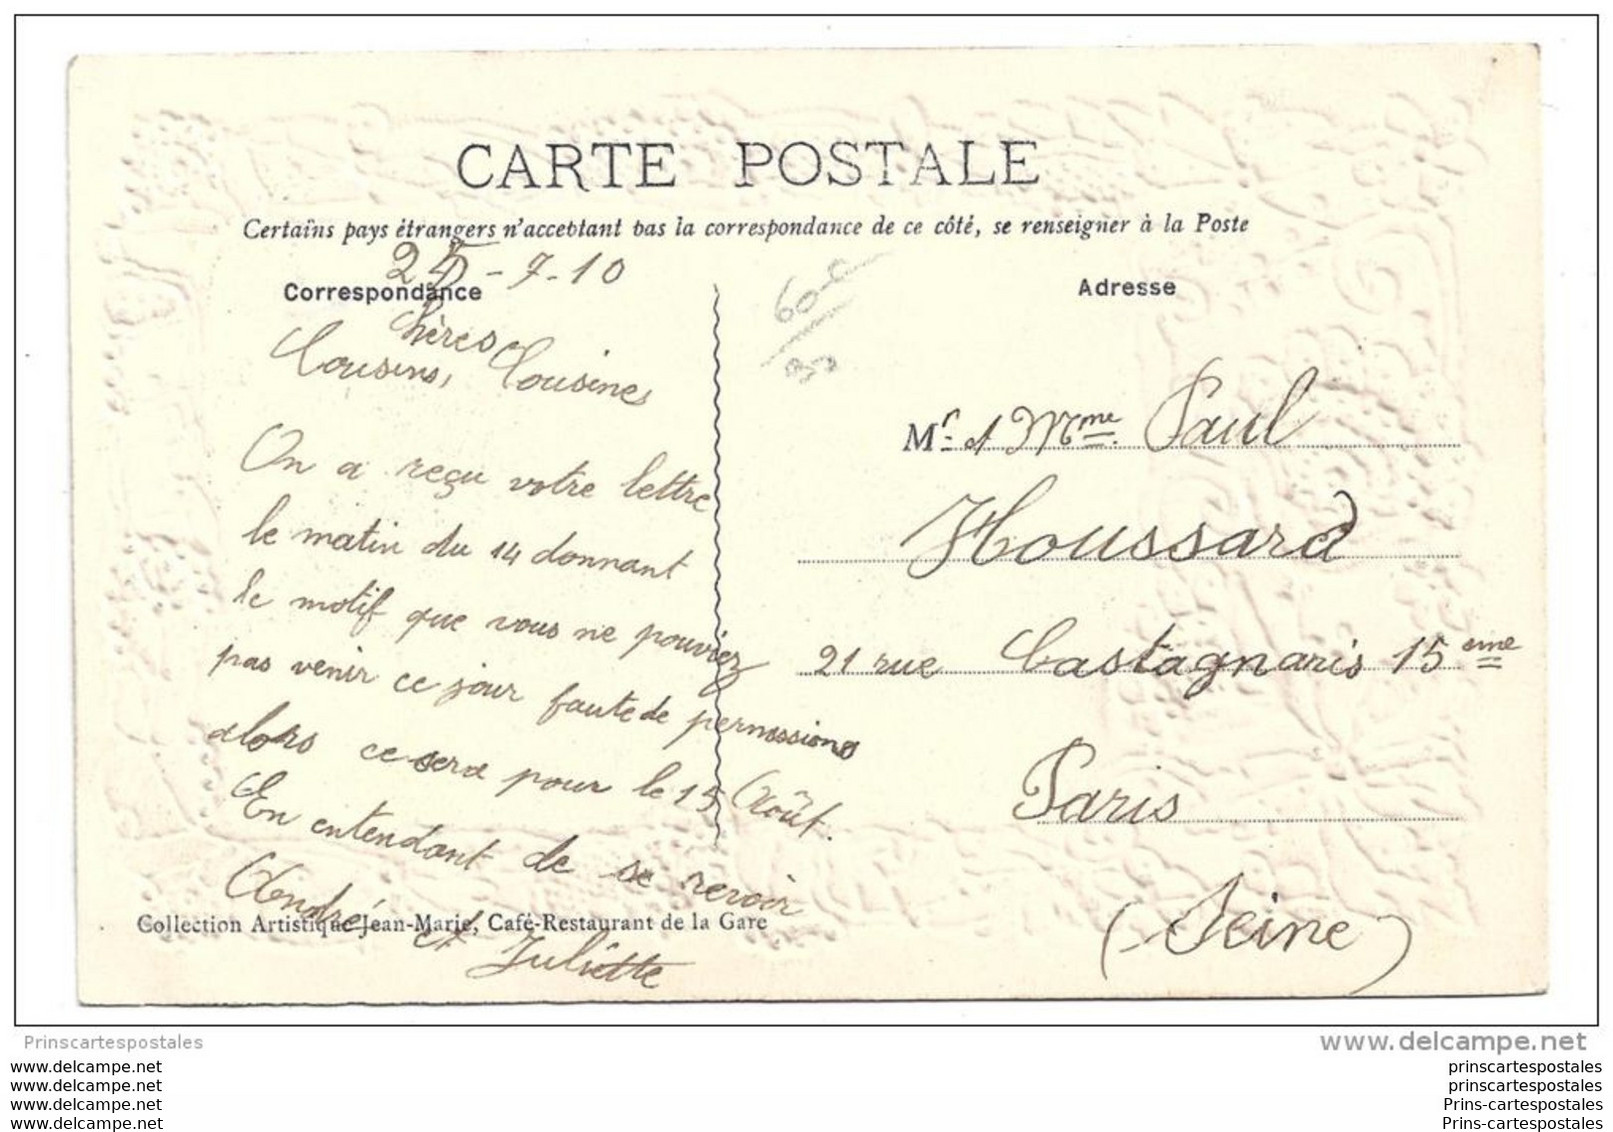 CARTE POSTALE
Certains pays étrangers n'acceptant pas la correspondance de ce côté, se renseigner à la Poste
-7-10
Correspondance
Adresse
Chères
Cousins, Cousines
On a reçu votre lettre
le matin du 14 donnant
le motif que vous ne pouviez
pas venir ce jour faute de permissions
alors ce sera pour le 15 Août.
En entendant de se revoir
André et Juliette
Collection Artistique Jean-Marie, Café-Restaurant de la Gare
Mr et Mme Paul
Houssard
21 rue Castagnaris 15 eme
Paris
(Seine)
Prinscartespostales
www.delcampe.net
www.delcampe.net
www.delcampe.net
www.delcampe.net
www.delcampe.net
prinscartespostales
prinscartespostales
Prins-cartespostales
Prins-cartespostales